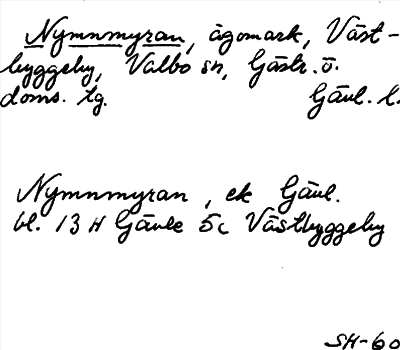 Nymnmyran, ägomark, Väst-
byggeby, Valbo sn, Gästr. ö.
doms. tg. Gävl. l.
Nymnmyran, ek Gävl.
bl. 13 H Gävle 5c Västbyggeby
SH-60